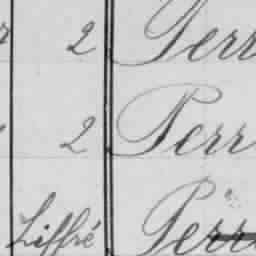 2 Perr
2 Perr
Liffré Perr